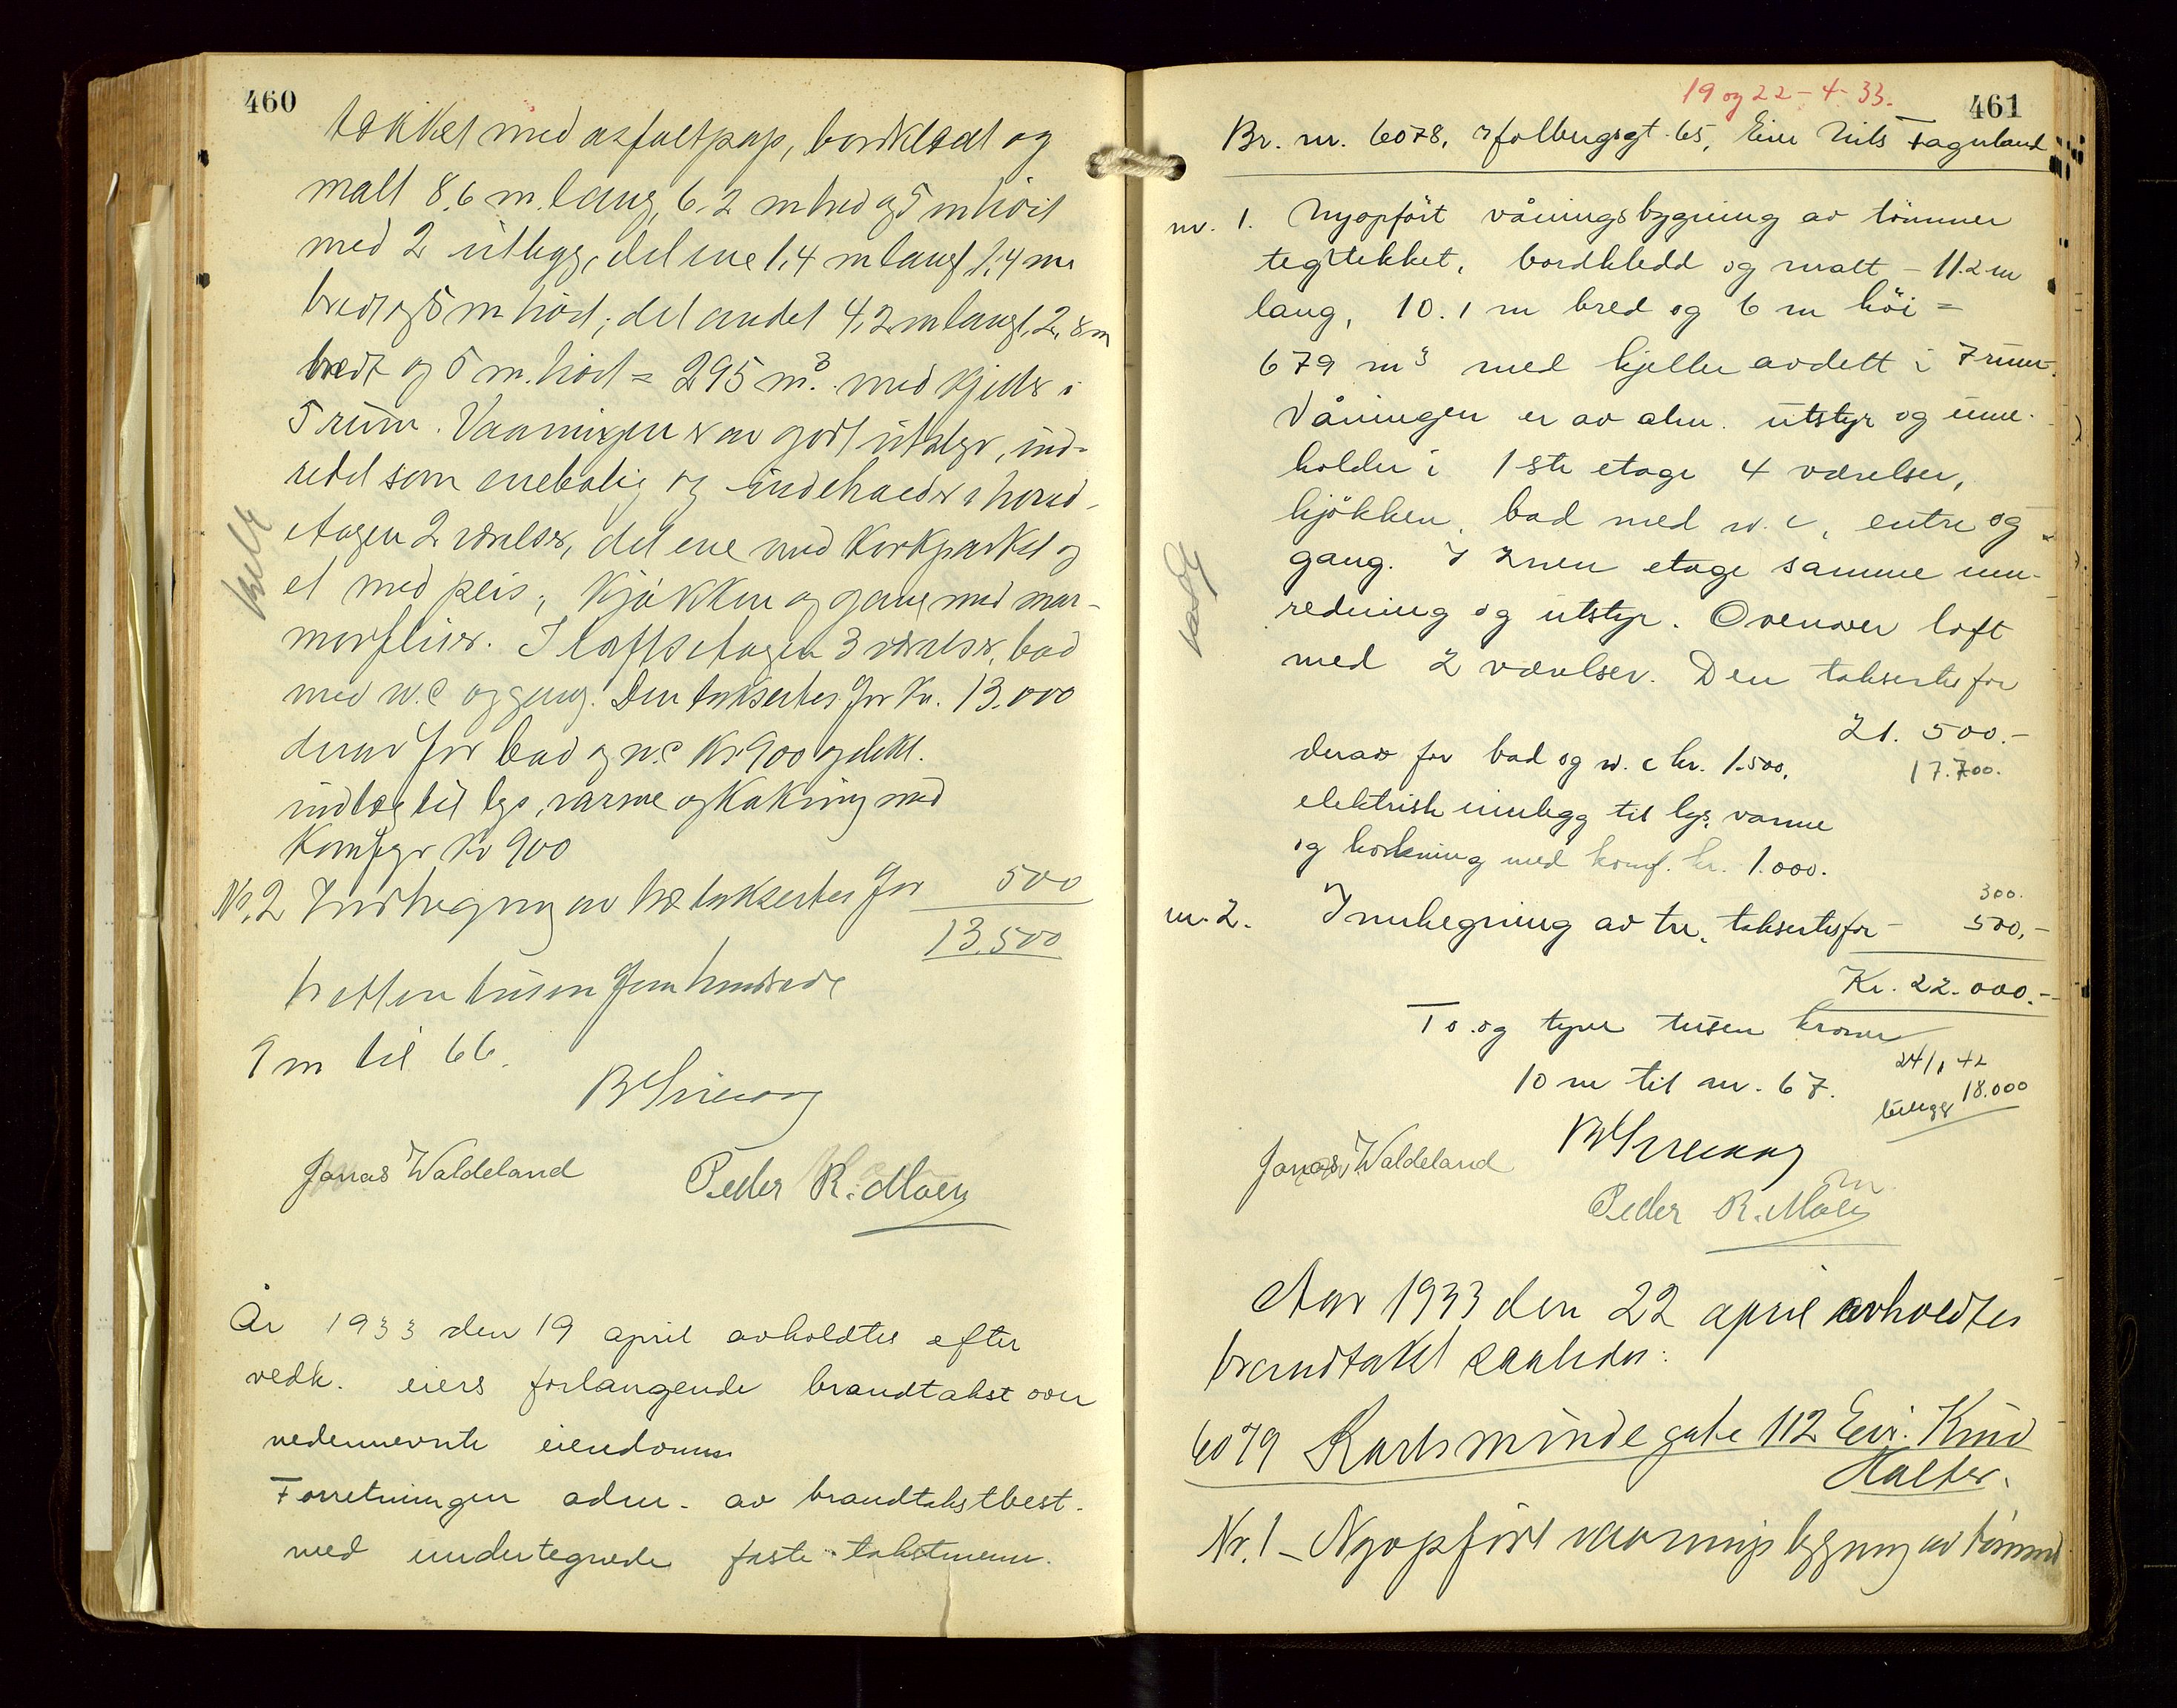 460
tækket med asfaltpap, bordklædt og
malt 8,6 m. lang, 6,2 m bred og 5 m høit
med 2 utbygg, det ene 1,4 m langt 1,4 m
bredt og 5 m høit; det andet 4,2 m langt, 2,8 m
bredt og 5 m. høit = 295 m³. med kjelder i
5 rum. Vaaningen er av godt utstyr, ind-
redet som enebolig og indeholder i hoved-
etagen 2 værelser, det ene med korkparket og
et med peis, kjøkken og gang med mar-
morfliser. I loftsetagen 3 værelser, bad
med w.c og gang. Den taksertes for Kr. 13.000
derav for bad og w.c Kr 900 og elekt.
indlæg til lys, varme og kokning med
Komfyr Kr 900
Nr. 2 Indhegning av træ taksertes for 500
13.500
tretten tusen fem hundrede
9 m til 66.
Jonas Waldeland Peder R. Moen
År 1933 den 19 april avholdtes efter
vedk. eiers forlangende brandtakst over
nedennevnte eiendommer
Forretningen adm. av brandtakstbest.
med undertegnede faste takstmenn.
19 og 22-4-33.
461
Br. nr. 6078, gt. 65, Eier Nils Fagerland
nr. 1. Nyopført våningsbygning av tømmer
tegltekket, bordkledd og malt - 11.2 m
lang, 10.1 m bred og 6 m høi =
679 m³ med kjeller avdelt i 7 rum.
Våningen er av alm. utstyr og inne-
holder i 1ste etage 4 værelser,
kjøkken, bad med w.c, entre og
gang. I 2nen etage samme inn-
redning og utstyr. Ovenover loft
med 2 værelser. Den taksertes for
21.500.-
derav for bad og w.c kr. 1.500. 17.700.
elektrisk innlegg til lys, varme
og kokning med komf. kr. 1.000.
300.
nr. 2. Innhegning av tre, taksertes for - 500.-
Kr. 22.000.-
To og tyve tusen kroner
24/1 42
10 m til nr. 67. 18.000
Jonas Waldeland
Peder R. Moen
Aar 1933 den 22 april avholdtes
brandtakst saaledes:
6079 Karlsmindegate 112 Eier: Knud
Halter.
Nr. 1 - Nyopført vaaningsbygning av tømmer